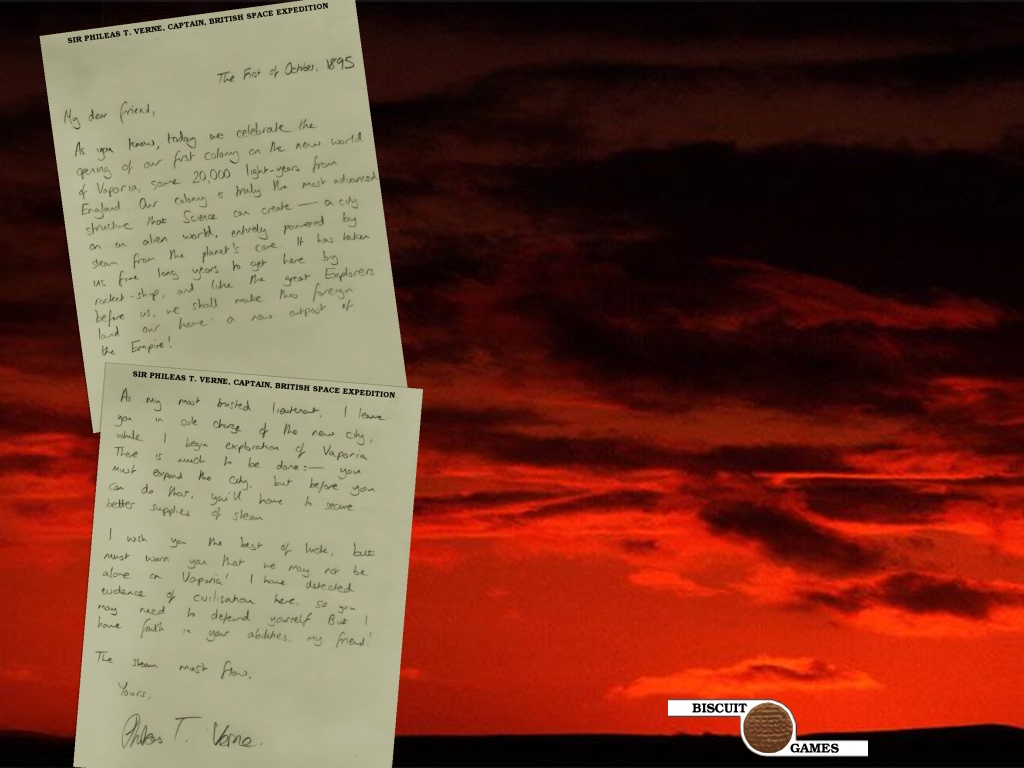 SIR PHILEAS T. VERNE, CAPTAIN, BRITISH SPACE EXPEDITION
The First of October, 1895
My dear friend,
As you know, today we celebrate the
opening of our first colony on the new world
of Vaporia, some 20,000 light-years from
England. Our colony is truly the most advanced
structure that Science can create — a city
on an alien world, entirely powered by
steam from the planet's core. It has taken
us five long years to get here by
rocket-ship, and like the great Explorers
before us, we shall make this foreign
land our home: a new outpost of
the Empire!
SIR PHILEAS T. VERNE, CAPTAIN, BRITISH SPACE EXPEDITION
As my most trusted lieutenant, I leave
you in sole charge of the new city,
while I begin exploration of Vaporia.
There is much to be done:— you
must expand the city, but before you
can do that, you'll have to secure
better supplies of steam.
I wish you the best of luck, but
must warn you that we may not be
alone on Vaporia! I have detected
evidence of civilisation here, so you
may need to defend yourself. But I
have faith in your abilities, my friend!
The steam must flow,
Yours,
Phileas T. Verne.
BISCUIT
GAMES